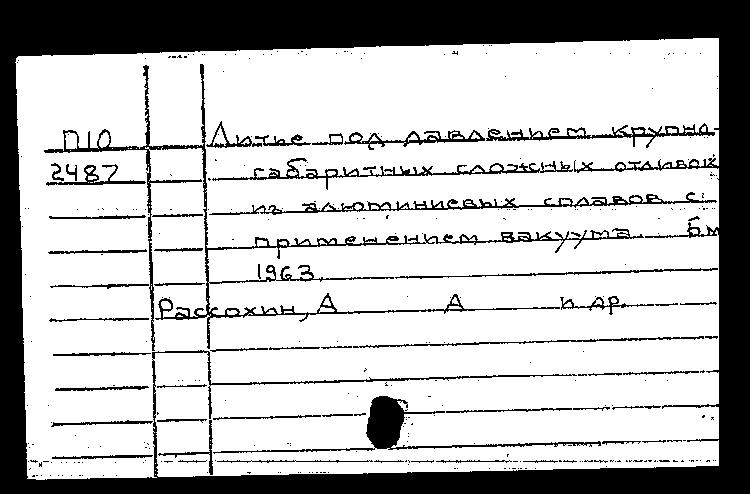 П10 Литье под давлением крупно-
2487 габаритных сложных отливок
из алюминиевых сплавов с
применением вакуума. Бм
1963.
Рассохин, А А и др.